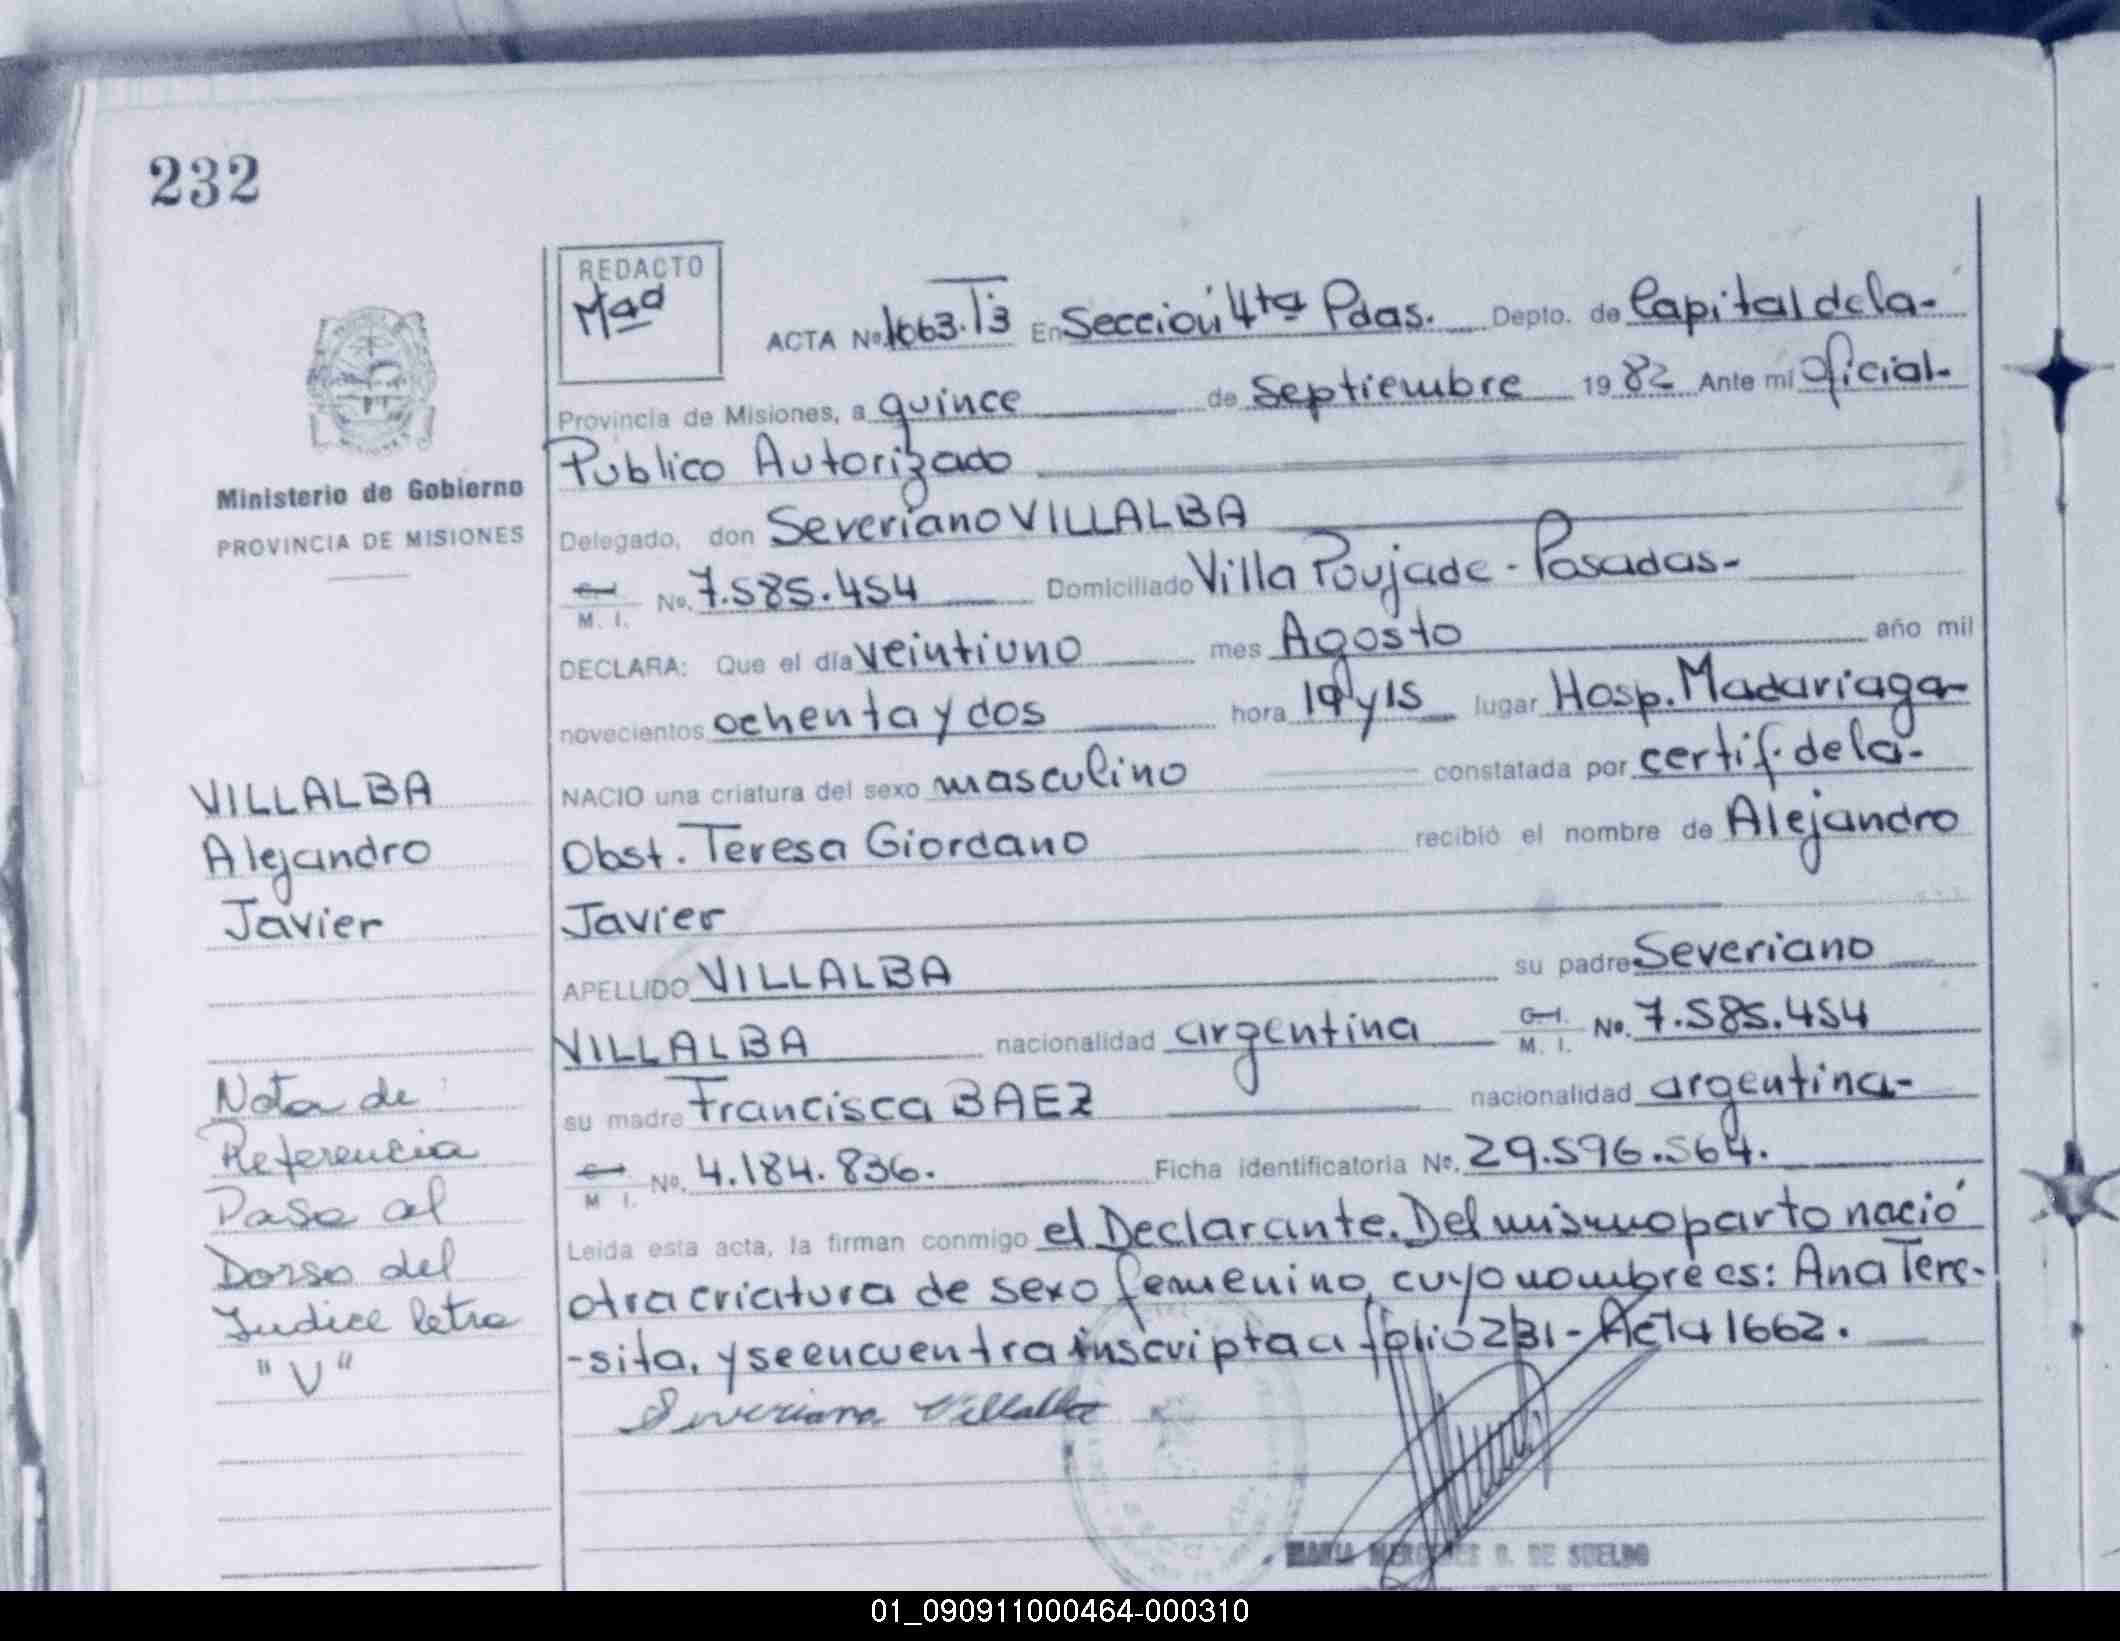 232
REDACTO
Mad
ACTA No. 1663. T3 En Sección 4ta Pdas. Depto. de Capital de la-
Provincia de Misiones, a quince de Septiembre 1982 Ante mi Oficial-
Publico Autorizado
Ministerio de Gobierno
PROVINCIA DE MISIONES
Delegado, don Severiano VILLALBA
M. I. No. 7.585.454 Domiciliado Villa Poujade - Posadas-
DECLARA: Que el día veintiuno mes Agosto año mil
novecientos ochenta y dos hora 19 y 15 lugar Hosp. Madariaga-
NACIO una criatura del sexo masculino constatada por certif. de la-
Obst. Teresa Giordano recibió el nombre de Alejandro
Javier
APELLIDO VILLALBA su padre Severiano
VILLALBA nacionalidad argentina C.I. M. I. No. 7.585.454
su madre Francisca BAEZ nacionalidad argentina-
M I. No. 4.184.836. Ficha identificatoria No. 29.596.564.
Leida esta acta, la firman conmigo el Declarante. Del mismo parto nació
otra criatura de sexo femenino, cuyo nombre es: Ana Tere-
-sita, y se encuentra inscripta a folio 231 - Acta 1662.
Severiano Villalba
MARIA MERCEDES D. DE SUELDO
VILLALBA
Alejandro
Javier
Nota de
Referencia
Pasa al
Dorso del
Indice letra
"V"
01_090911000464-000310